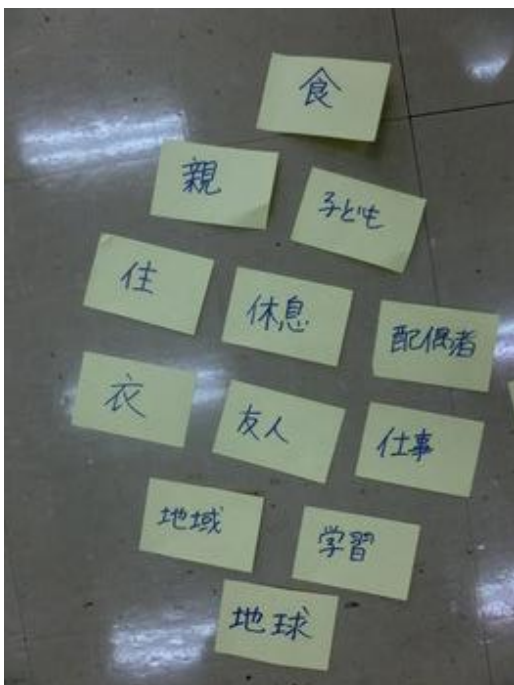 食
親
子ども
住
休息
配偶者
衣
友人
仕事
地域
学習
地球